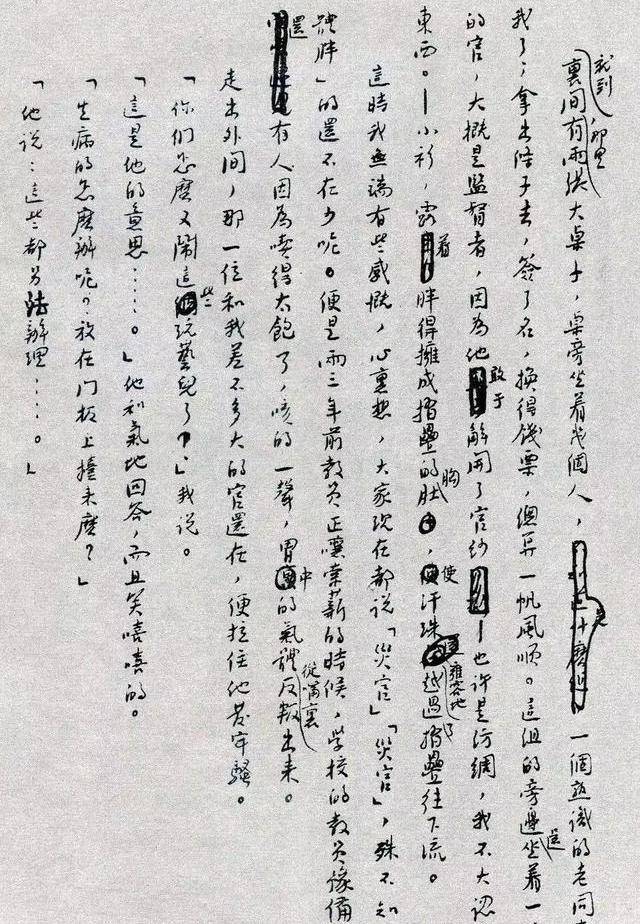 就到那里
裏間有兩張大桌子，桌旁坐着幾個人，一個熟識的老同
我了；拿出條子去，簽了名，換得錢票，總算一帆風順。這組的旁邊還坐着一
的官，大概是監督者，因為他敢于解開了官紗—也許是紡綢，我不大認
東西。—小衫，露着胖得擁成摺疊的胸肚，使汗珠雍容地越過了摺疊往下流。
這時我無端有些感慨，心裏想，大家現在都說「災官」「災官」，殊不知
體胖」的還不在少呢。便是兩三年前教員正嚷索薪的時候，學校的教員豫備
還有人因為喫得太飽了，咳的一聲，胃中的氣體從嘴裏反叛出來。
走出外間，那一位和我差不多大的官還在，便拉住他發牢騷。
「你們怎麼又鬧這些玩藝兒了？」我说。
「這是他的意思……。」他和氣地回答，而且笑嘻嘻的。
「生病的怎麼辦呢？放在门板上擡来麼？」
「他说：這些都另法辦理……。」